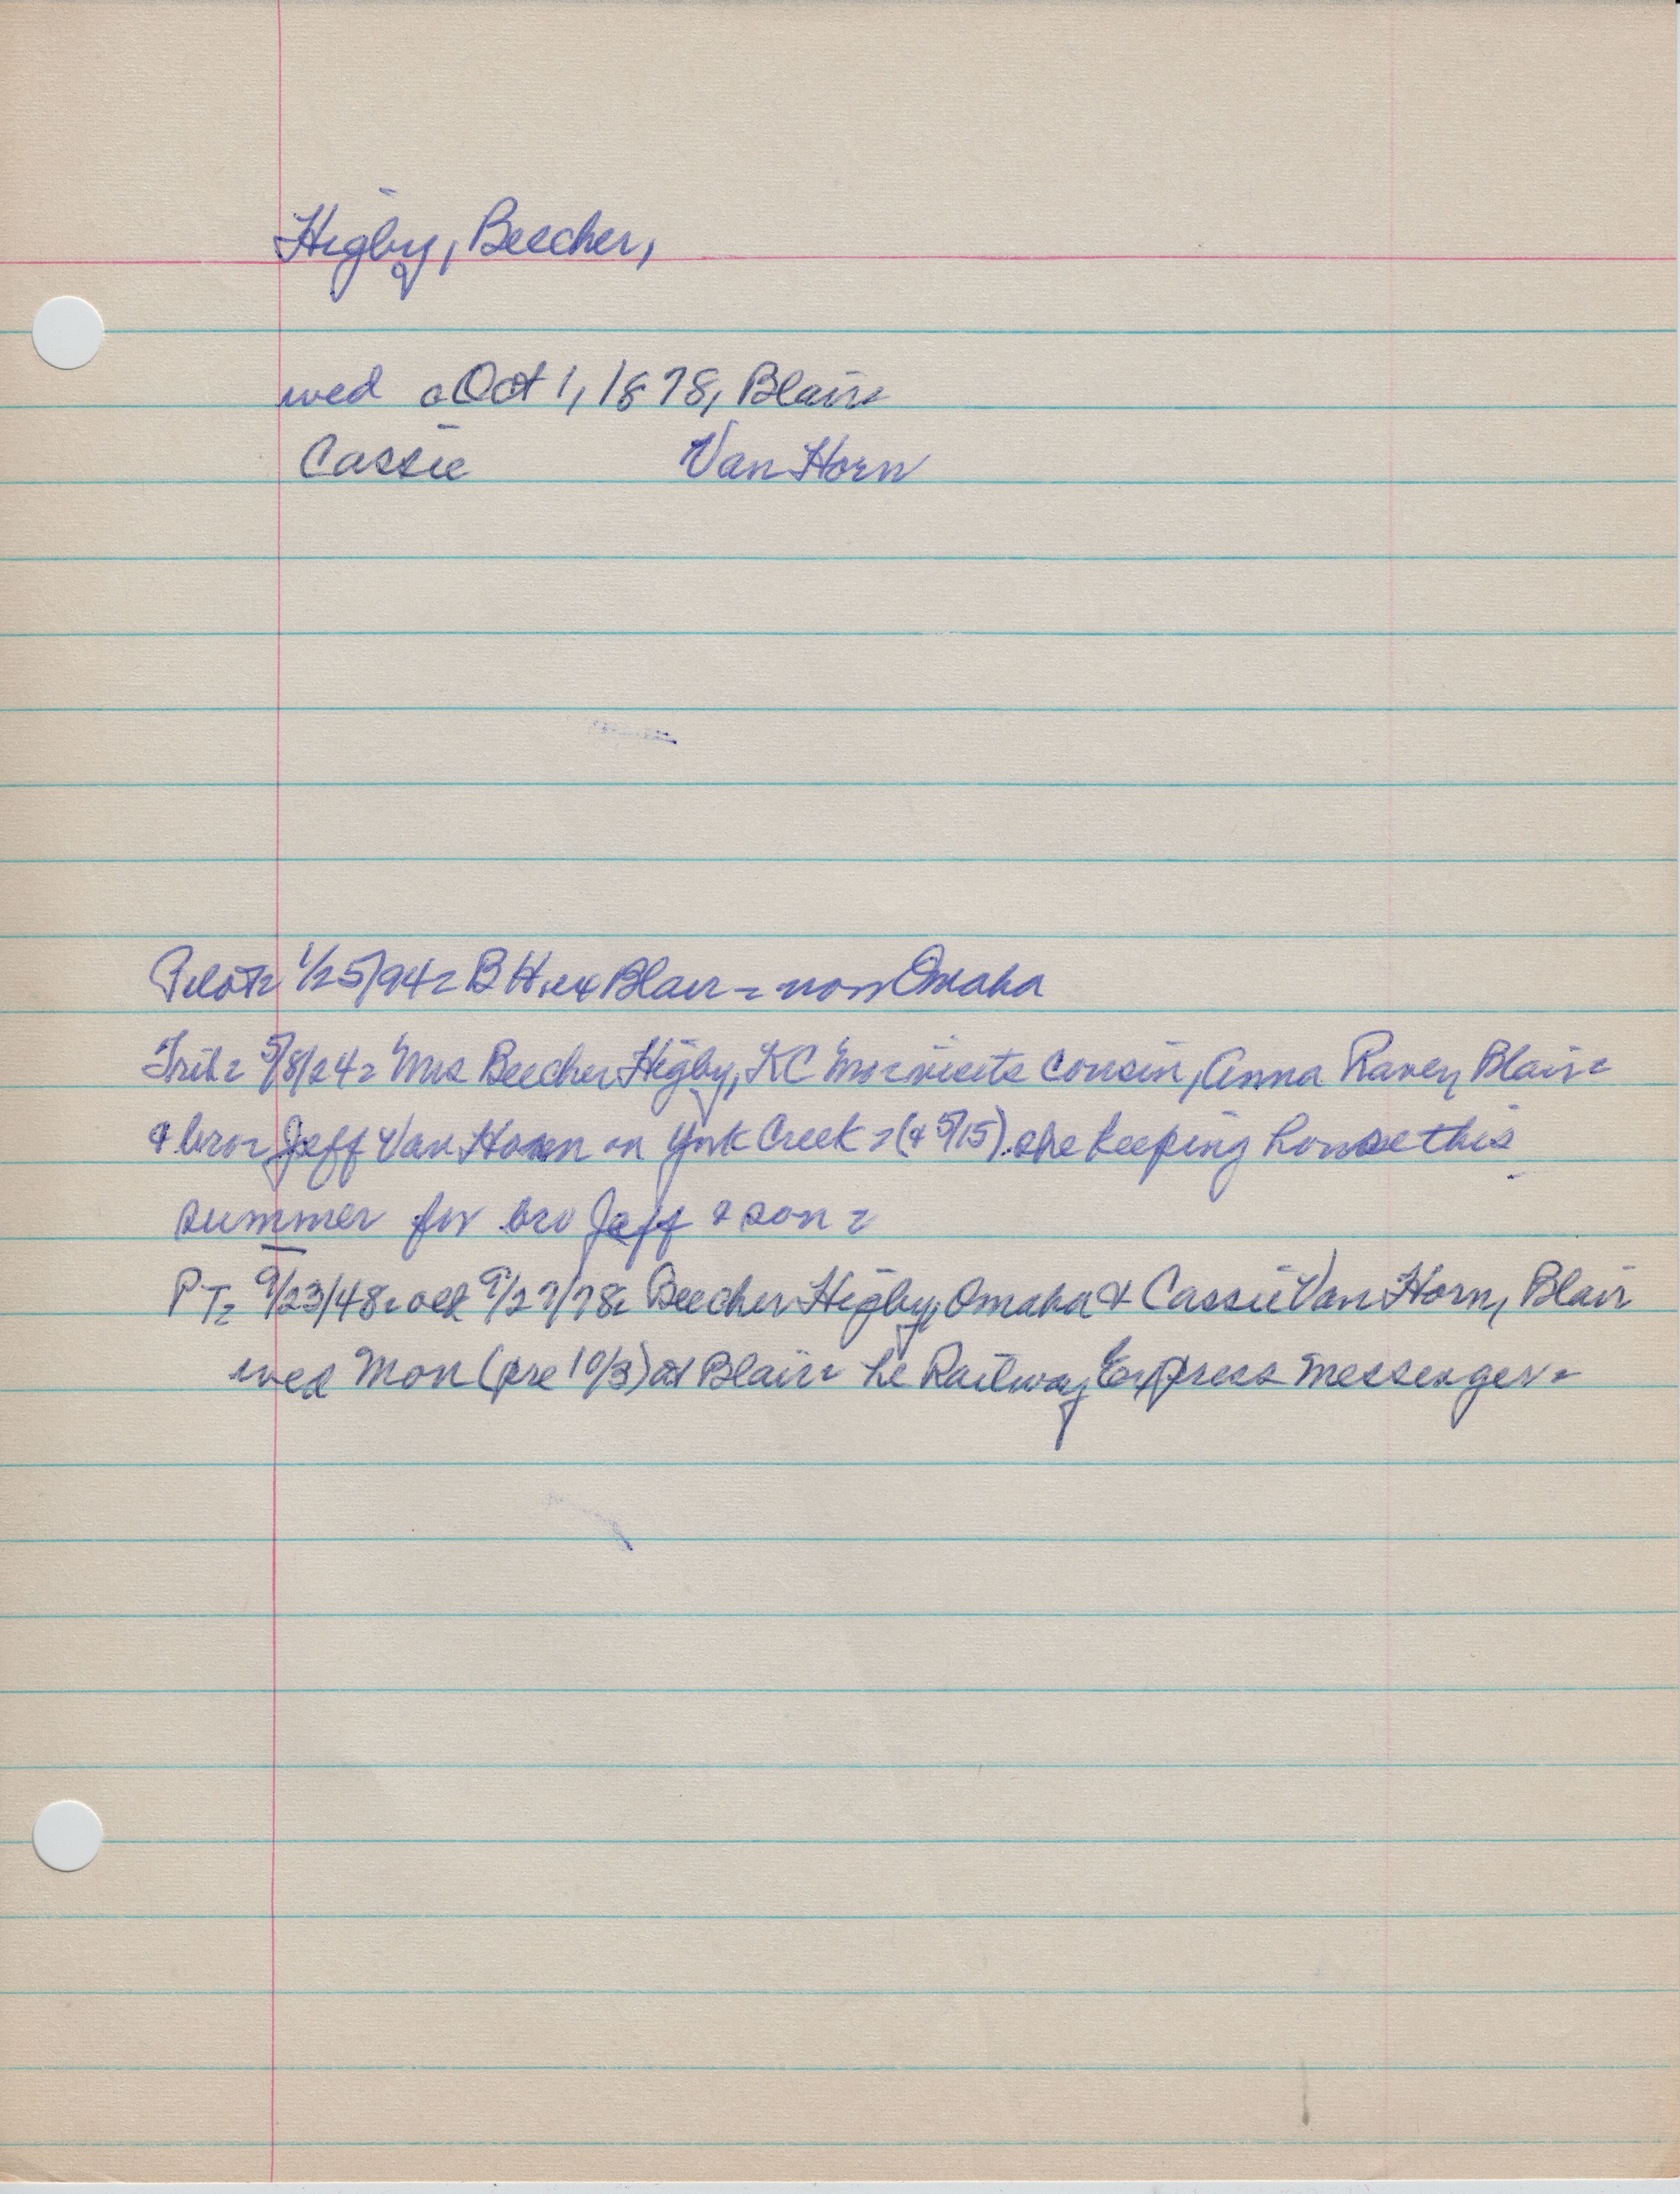 Higby, Beecher,
wed c Oct 1, 1878, Blair
Cassie Van Horn
Pilot= 1/25/94= B H, ex Blair = now Omaha
Trib= 5/8/24= Mrs Beecher Higby, KC Mo= visits cousin, Anna Raven, Blair=
& bro= Jeff Van Horn on York Creek = (& 5/15) she keeping house this
summer for bro Jeff & son =
PT= 9/23/48= old 9/27/78= Beecher Higby, Omaha & Cassie Van Horn, Blair
wed Mon (pre 10/3) at Blair= he Railway Express Messenger=